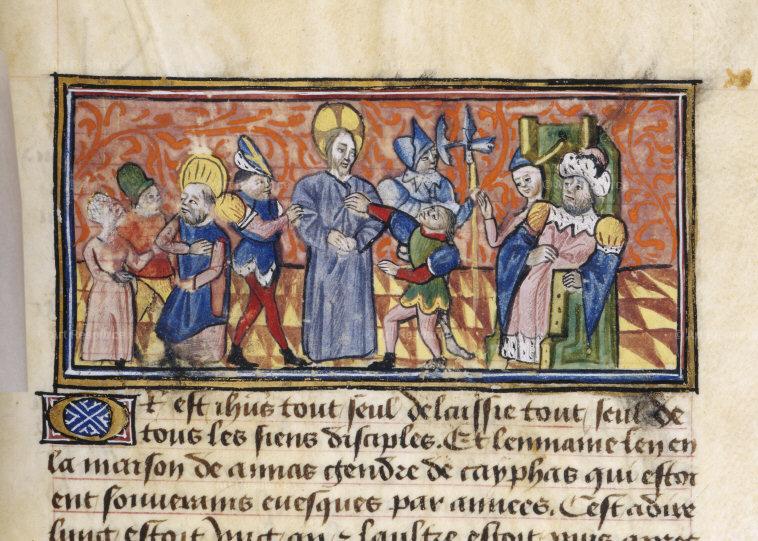 Or est ihus tout seul delaissie tout seul de
tous les siens disciples. Et lenmaine len en
la maison de annas gendre de cayphas qui estoi
ent souuerains euesques par annees. Cest adire
lung estoit vng an & laultre estoit vng aultre